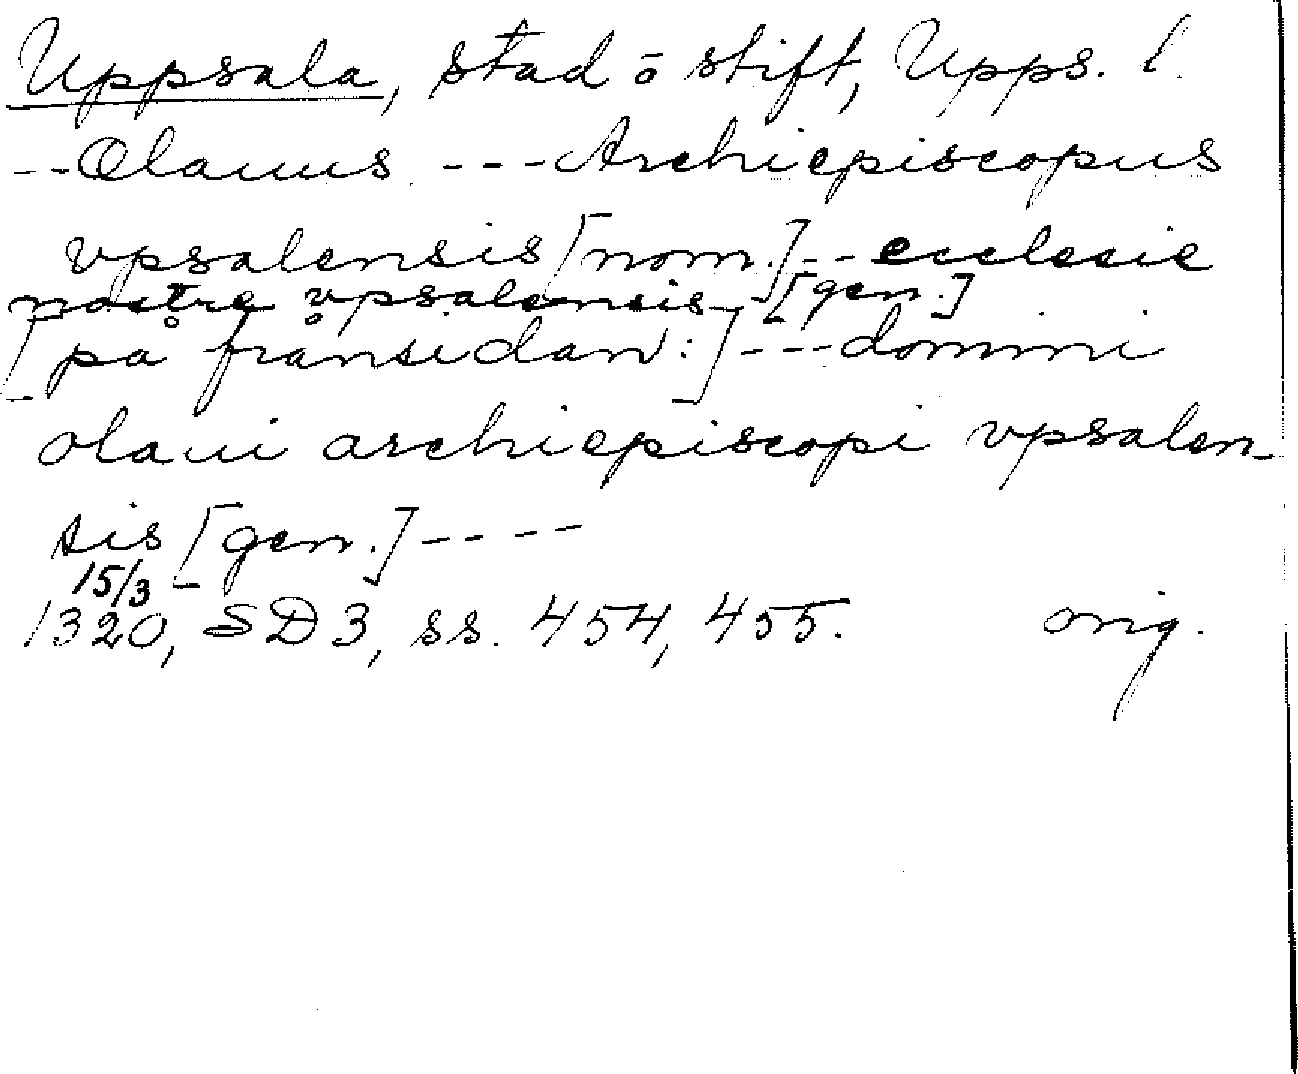 Uppsala, stad o stift, Upps. l.
--Olauus ---Archiepiscopus
vpsalensis [nom.]--ecclesie
nostre vpsalensis- [gen.]
[på frånsidan:]---domini
olaui archiepiscopi vpsalen-
sis [gen.]----
15/3
1320, SD 3, ss. 454, 455. orig.